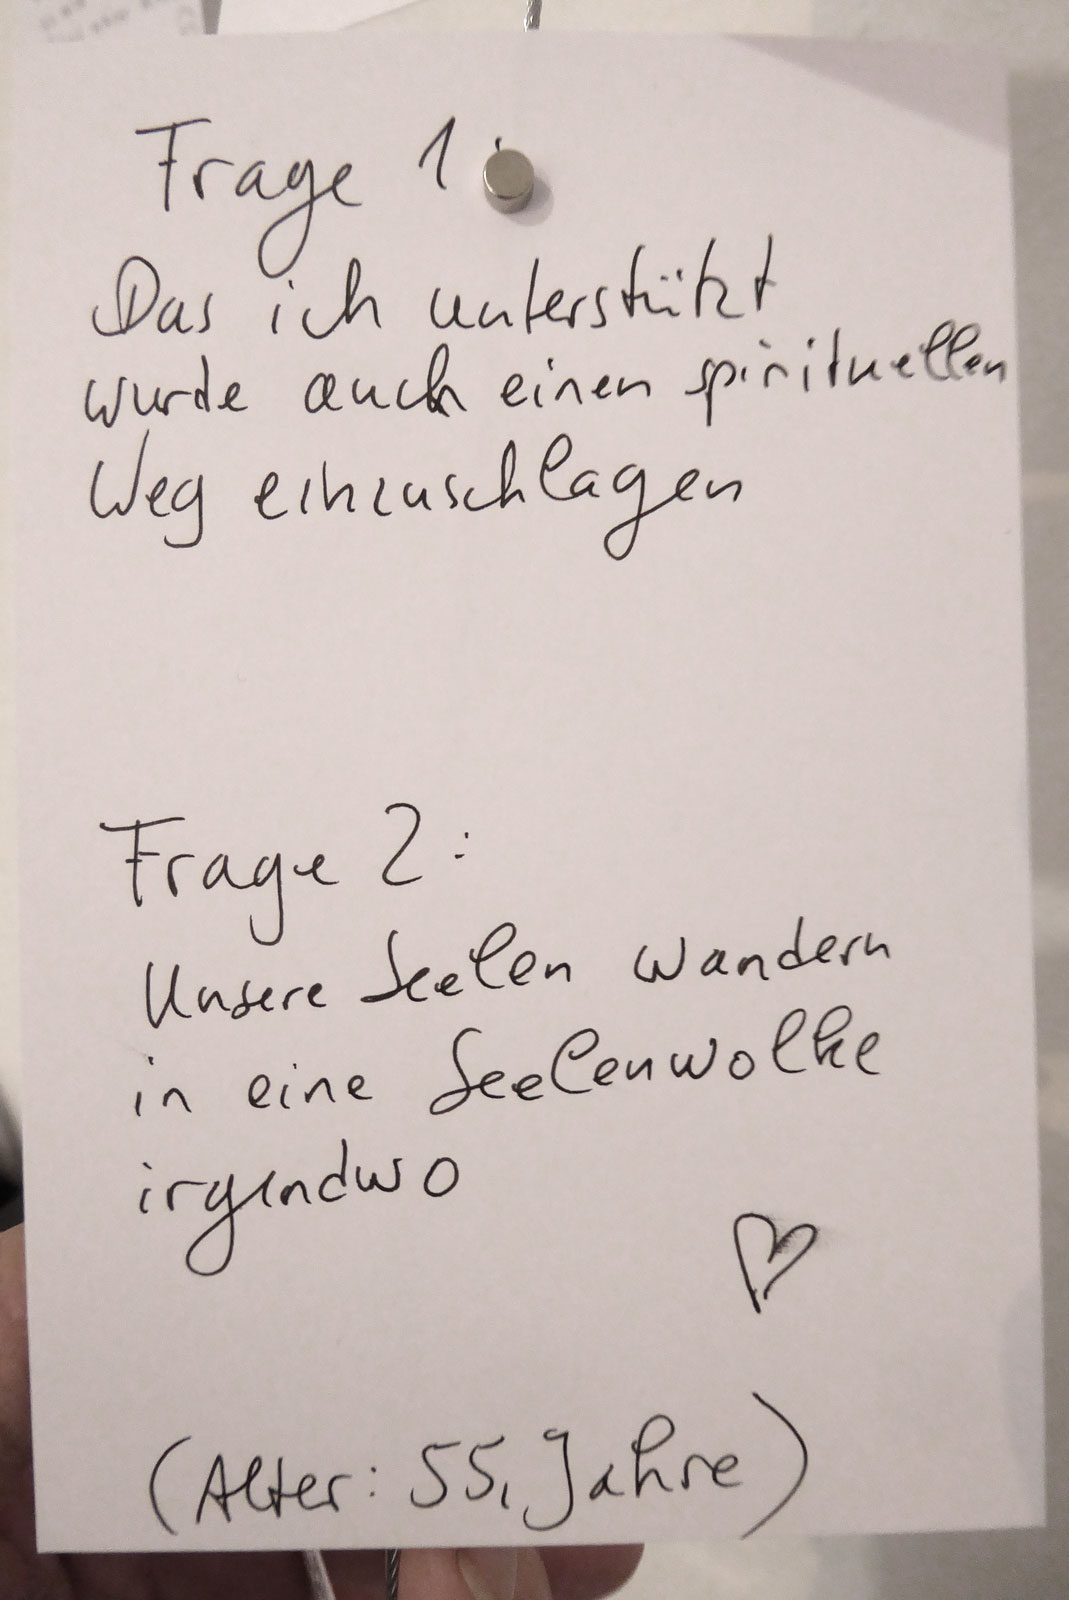 Frage 1:
Das ich unterstützt
wurde auch einen spirituellen
Weg einzuschlagen
Frage 2:
Unsere Seelen wandern
in eine Seelenwolke
irgendwo
(Alter: 55, Jahre)